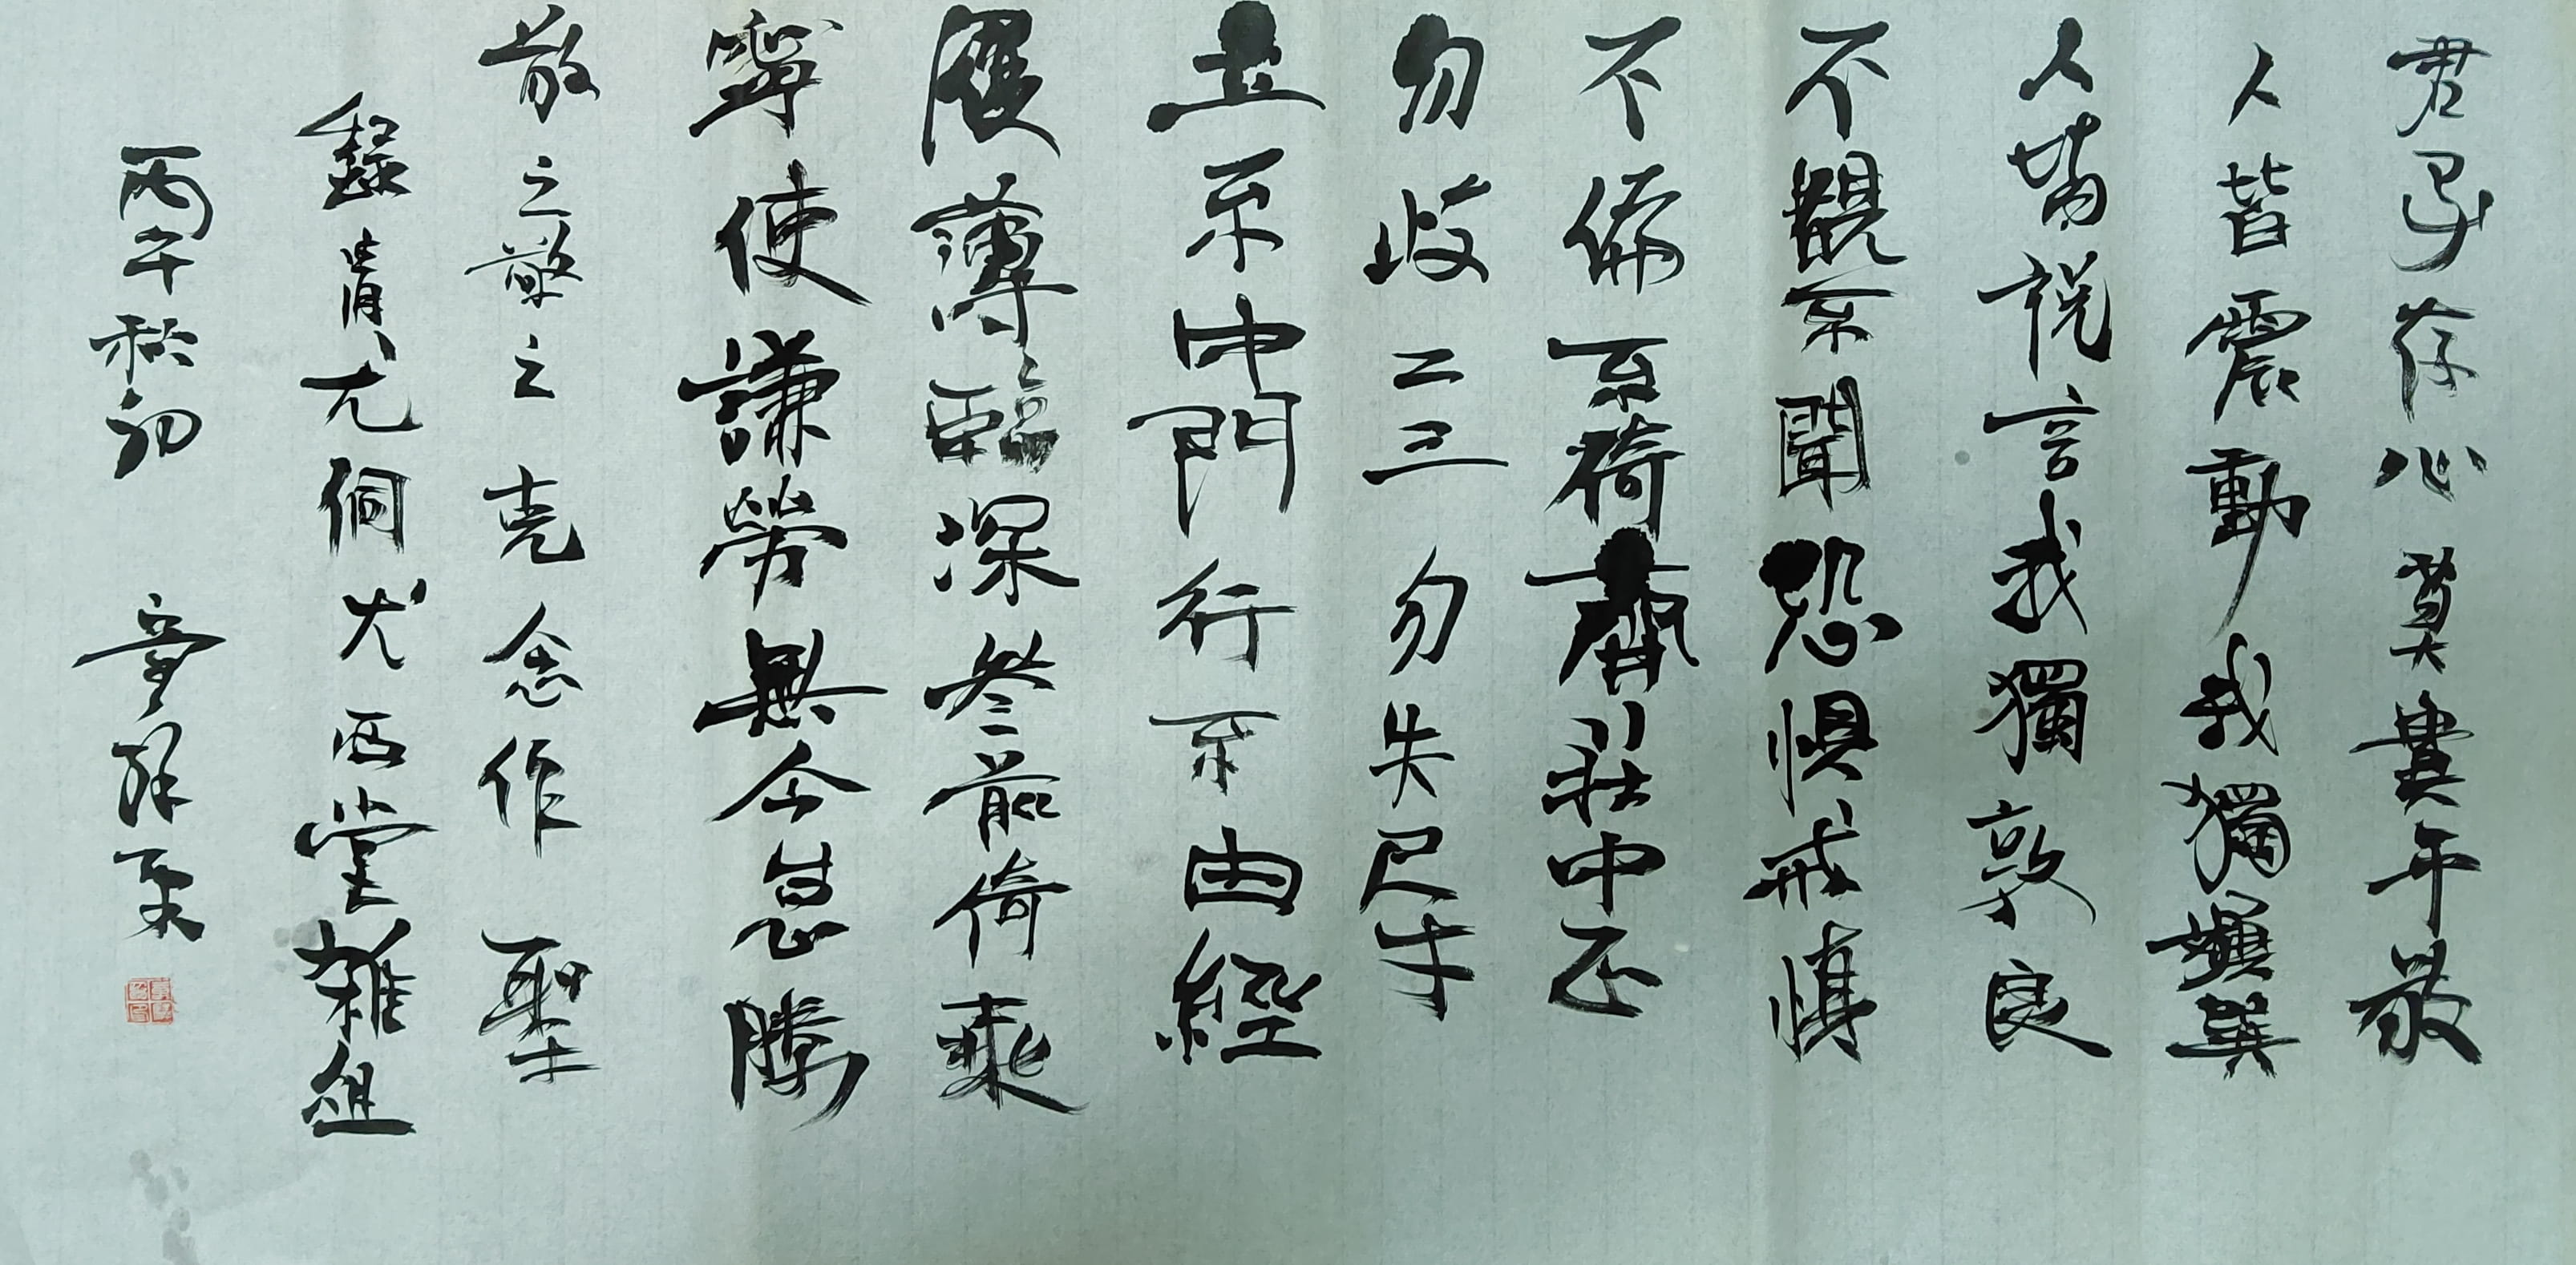 君子存心莫要乎敬
人皆震動我獨巽
人皆說言我獨敦良
不覩不聞恐懼戒慎
不偏不倚齊莊中正
勿歧二三勿失尺寸
立不中門行不由經
履薄臨深參前倚乘
寧使謙勞無令怠勝
敬之敬之克念作聖
錄清尤侗尤西堂雜俎
丙午秋初